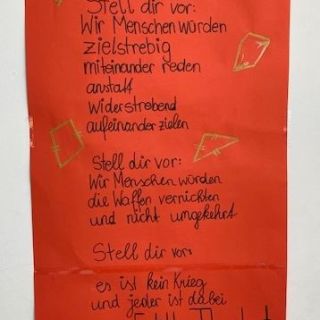 Stell dir vor:
Wir Menschen würden
zielstrebig
miteinander reden
anstatt
widerstrebend
aufeinander zielen
Stell dir vor:
Wir Menschen würden
die Waffen vernichten
und nicht umgekehrt
Stell dir vor:
es ist kein Krieg
und jeder ist dabei